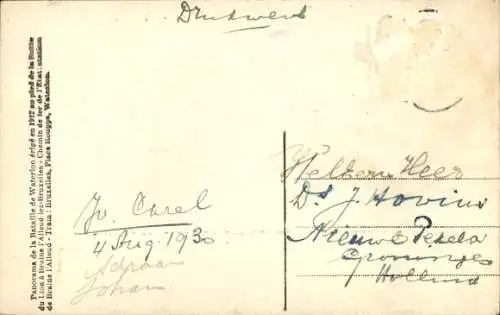 Drukwerk
Panorama de la Bataille de Waterloo érigé en 1912 au pied de la Butte
du Lion à Braine l'Alleud-lez-Bruxelles - Chemin de fer de l'Etat: station
de Braine l'Alleud - Tram: Bruxelles, Place Rouppe, Waterloo.
Welterw Heer
Ds J. Hovius
Nieuwe Pekela
Groningen
Holland
Carel
4 Aug. 1930
Adriaan
Johan